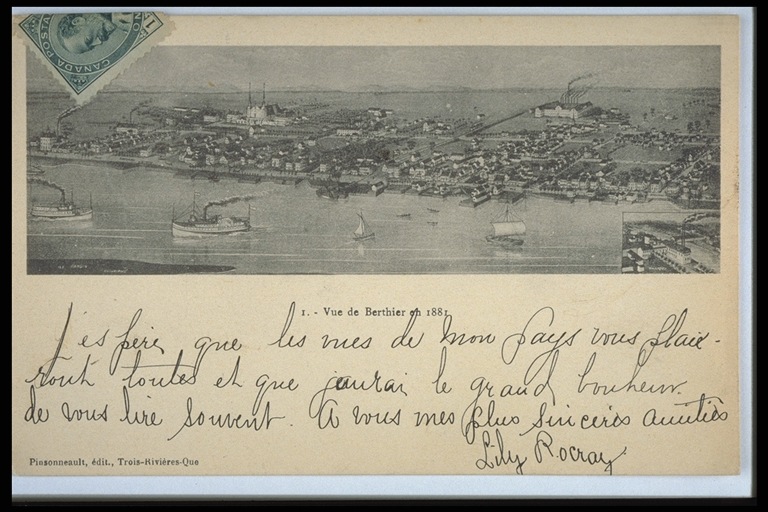 CANADA POSTA
1. - Vue de Berthier en 1881
J'espère que les vues de Mon Pays vous plaie-
ront toutes et que j'aurai le grand bonheur
de vous lire souvent. A vous mes plus sincères amitiés
Lily Rocray
Pinsonneault, édit., Trois-Rivières-Que